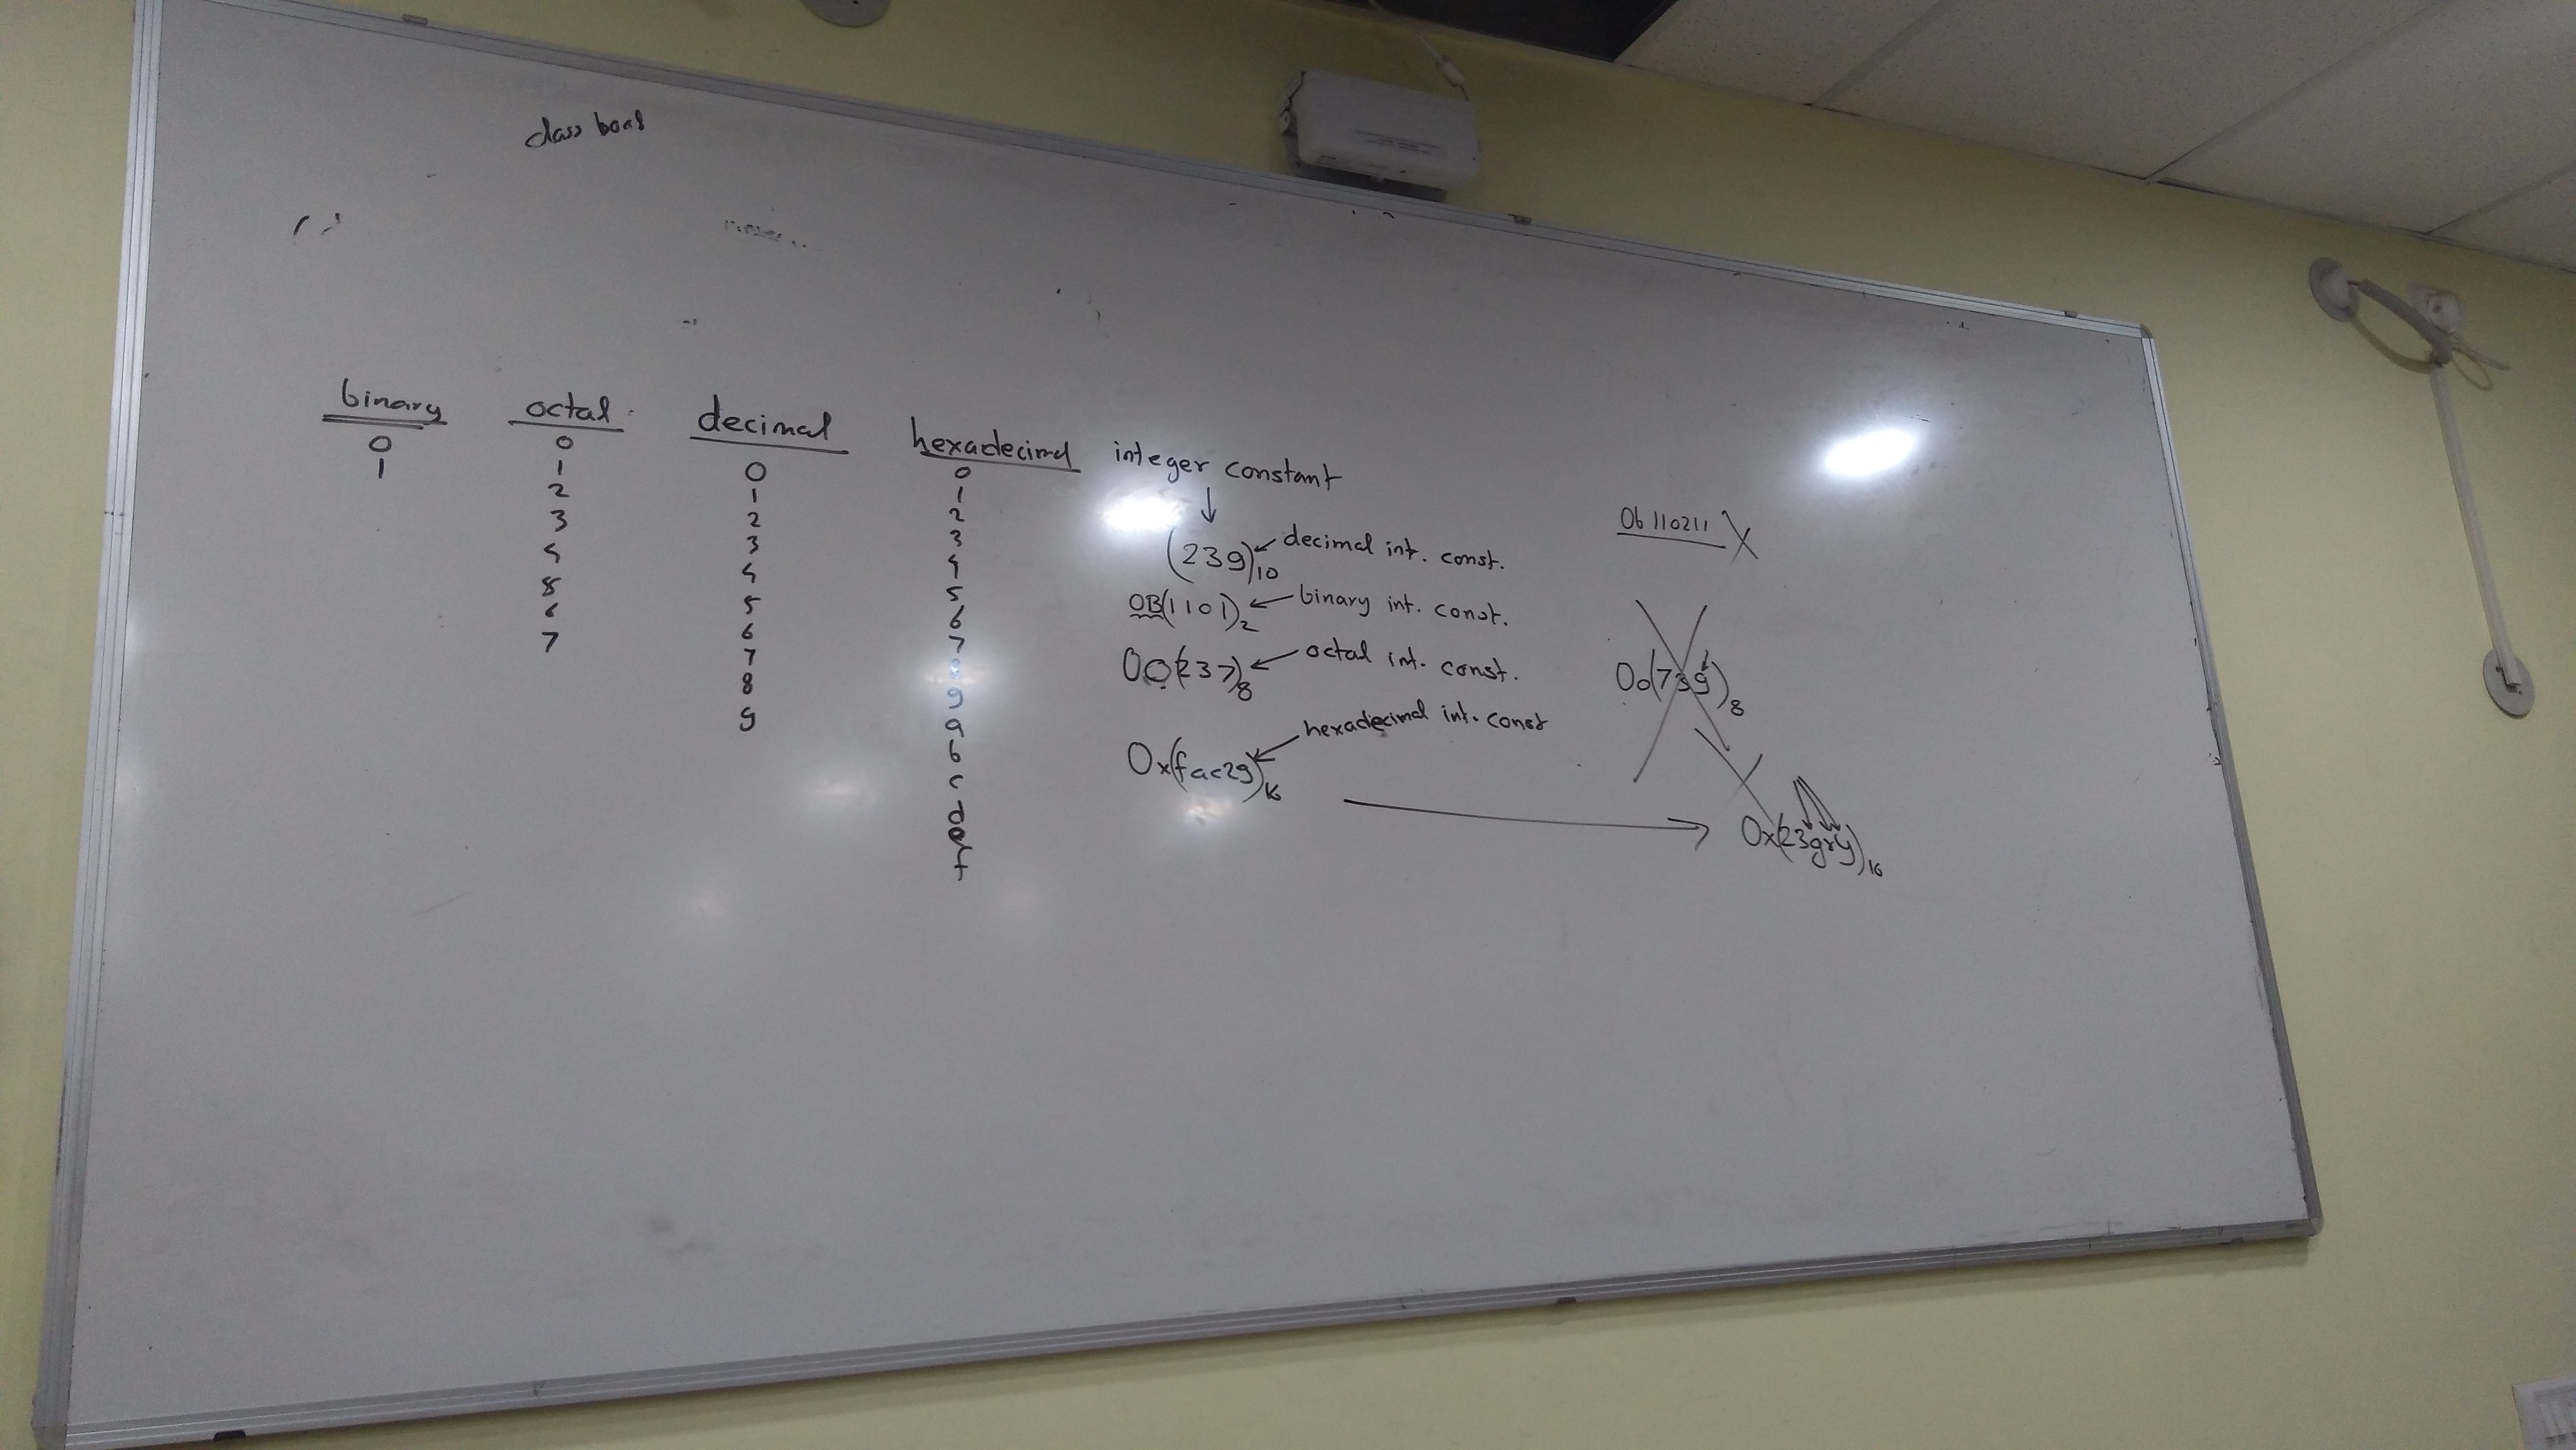 class board
binary
0
1
octal
0
1
2
3
4
8
6
7
decimal
0
1
2
3
4
5
6
7
8
9
hexadecimal
0
1
2
3
4
5
6
7
8
9
a
b
c
d
e
f
integer constant
↓
(239)10 ← decimal int. const.
0B(1101)2 ← binary int. const.
0O(237)8 ← octal int. const.
0x(fac29)16 ← hexadecimal int. const
0b110211 X
0o(739)8
0x(23gry)16